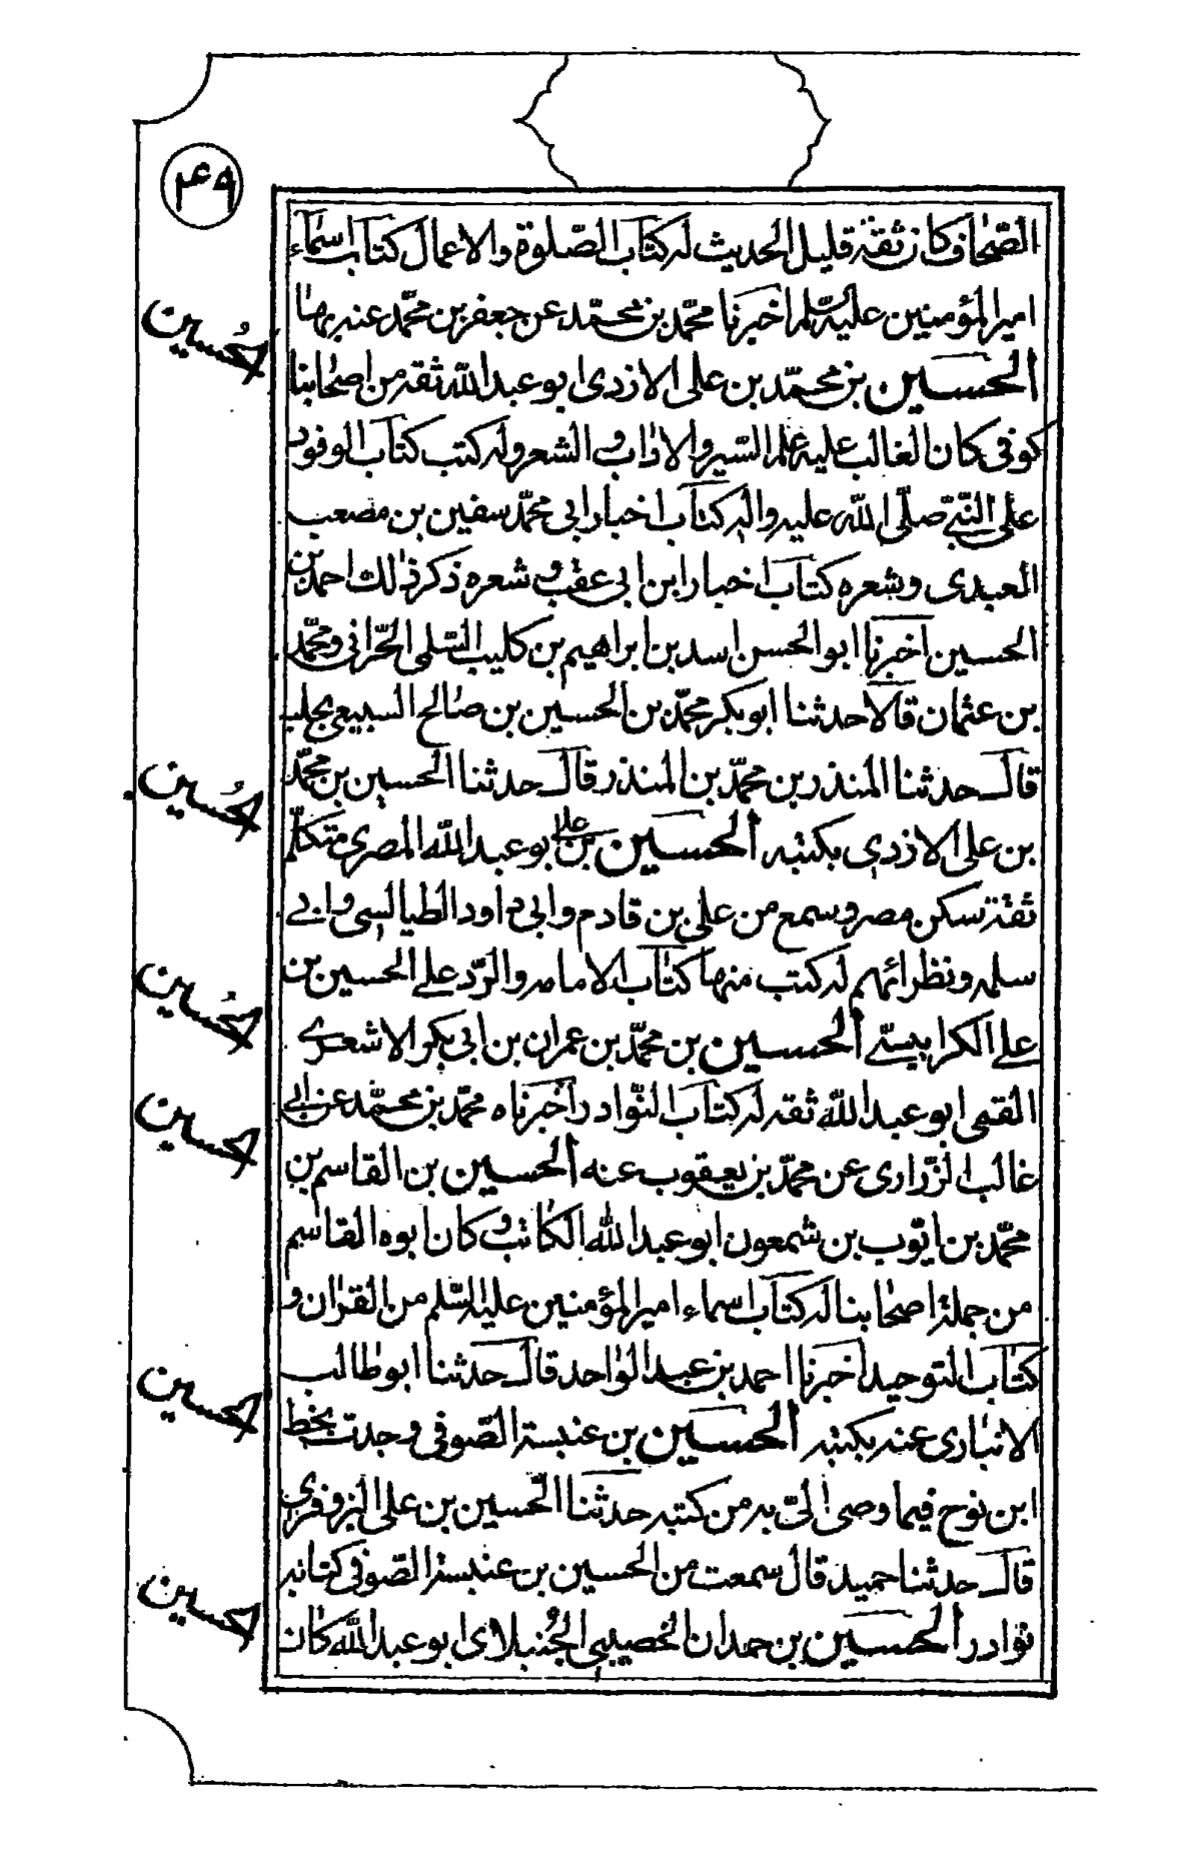 ۴۹
الصحاف كان ثقة قليل الحديث له كتاب الصّلوة والاعمال كتاب اسماء
امير المؤمنين عليه السّلم اخبرنا محمّد بن محمّد عن جعفر بن محمّد عنه بها
الحسين
الحسين بن محمّد بن علي الازدي ابو عبد الله ثقه من اصحابنا
كوفي كان الغالب عليه علم السّير والاداب والشعر وله كتب كتاب الوفود
على النّبيّ صلّى الله عليه واله كتاب اخبار ابي محمّد سفين بن مصعب
العبدي وشعره كتاب اخبار ابن ابي عقب وشعره ذكر ذلك احمد بن
الحسين اخبرنا ابو الحسن اسد بن ابراهيم بن كليب السّلمي الحّراني ومحمّد
بن عثمان قالا حدثنا ابو بكر محمّد بن الحسين بن صالح السبيعي بحلب
قال حدثنا المنذر بن محمّد بن المنذر قال حدثنا الحسين بن محمّد
الحسين
بن علي الازدي بكتبه الحسين بن علي ابو عبد الله المصري متكلّم
ثقة سكن مصر وسمع من علي بن قادم وابي داود الطيالسي وابي
سلمه ونظرائهم له كتب منها كتاب الامامه والرّد على الحسين بن
الحسين
علي الكرابيسي الحسين بن محمّد بن عمران بن ابي بكر الاشعري
القمي ابو عبد الله ثقه له كتاب النّوادر اخبرناه محمّد بن محمّد عن ابي
الحسين
غالب الزّراري عن محمّد بن يعقوب عنه الحسين بن القاسم بن
محمّد بن ايّوب بن شمعون ابو عبد الله الكاتب وكان ابوه القاسم
من جملة اصحابنا له كتاب اسماء امير المؤمنين عليه السّلم من القران و
كتاب التوحيد اخبرنا احمد بن عبد الواحد قال حدثنا ابو طالب
الحسين
الانباري عنه بكتبه الحسين بن عنبسة الصّوفي وجدت بخط
ابن نوح فيما وصى اليّ به من كتبه حدثنا الحسين بن علي البزوفري
قال حدثنا حميد قال سمعت من الحسين بن عنبسة الصّوفي كتابه
الحسين
نوادر الحسين بن حمدان الخصيبي الجُنبلاي ابو عبد الله كان